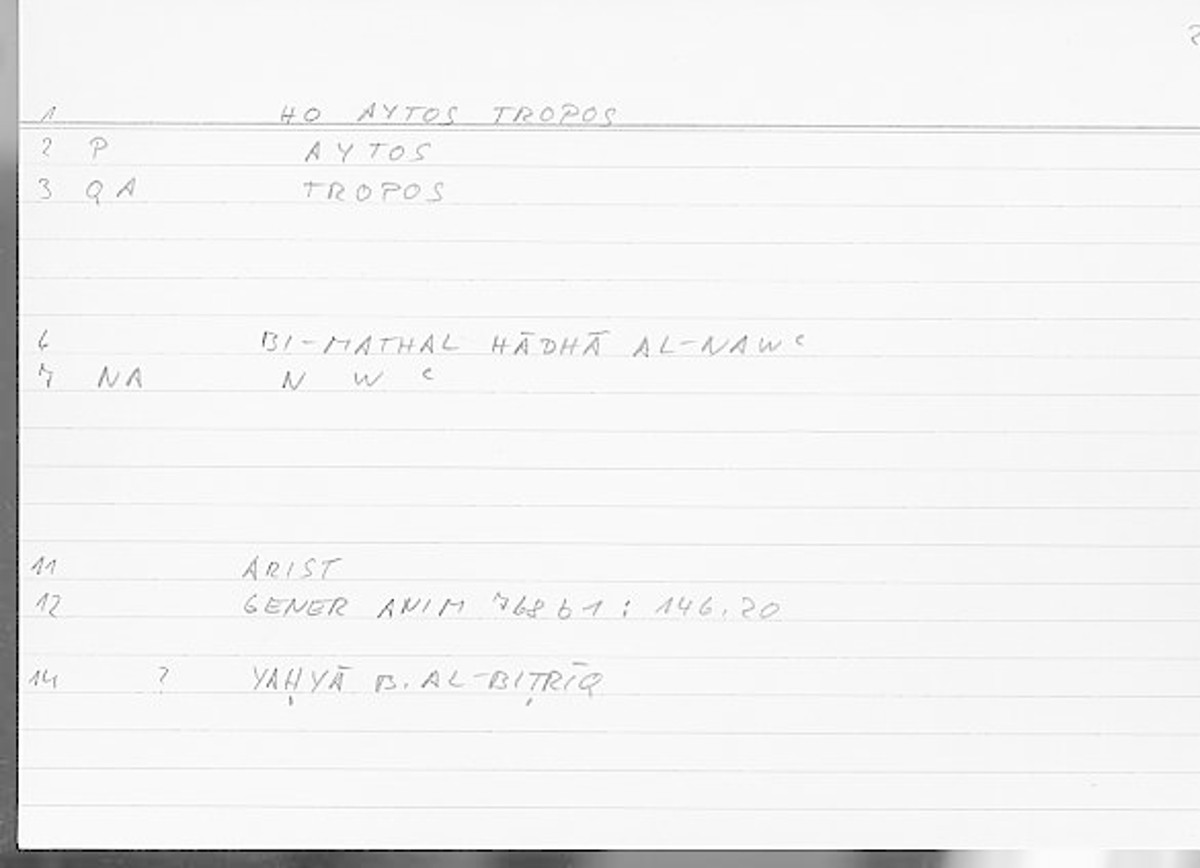 1 HO AYTOS TROPOS
2 P AYTOS
3 QA TROPOS
6 BI-MATHAL HĀDHĀ AL-NAWᶜ
7 NA N W ᶜ
11 ARIST
12 GENER ANIM 768b1 : 146.20
14 ? YAḤYĀ B. AL-BIṬRĪQ